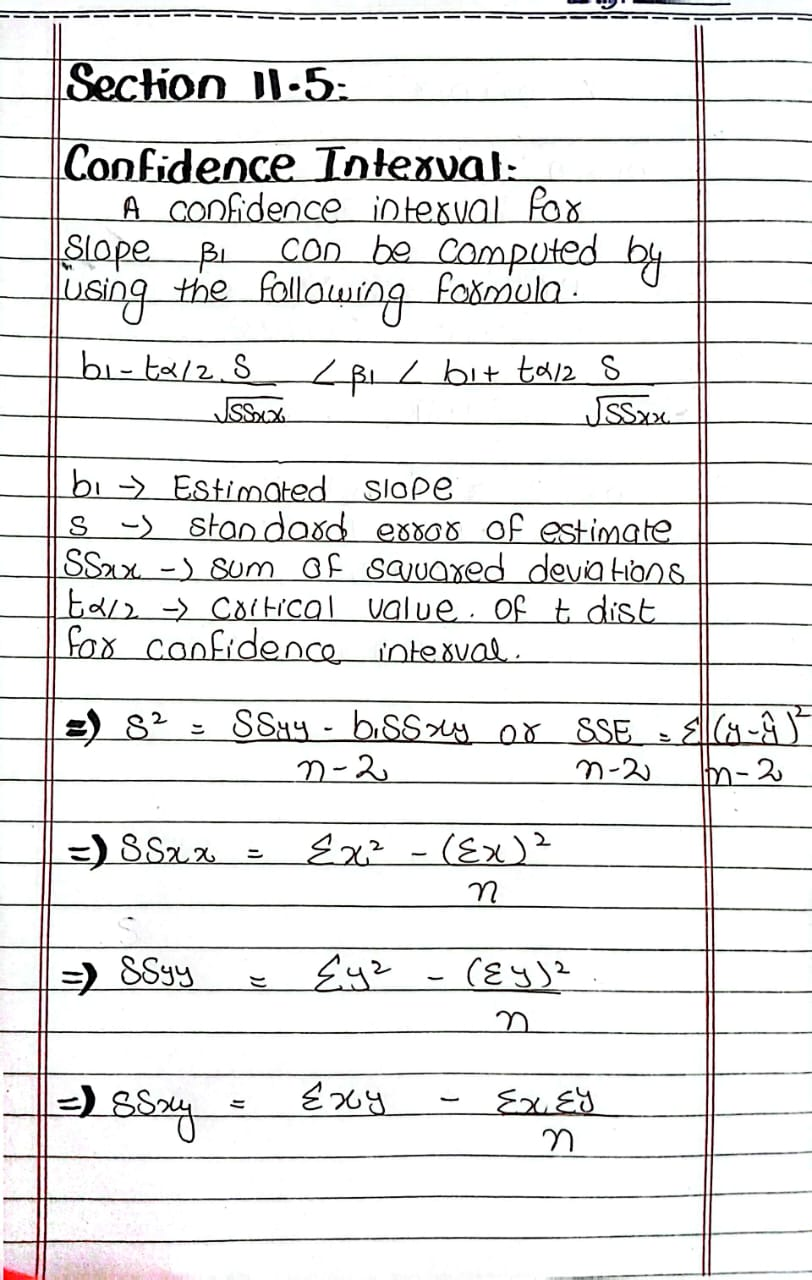 Section 11.5:
Confidence Interval:
A confidence interval for
slope β1 can be computed by
using the following formula.
b1 - tα/2 . S < β1 < b1 + tα/2 S
√SSxx √SSxx
b1 → Estimated slope
S → standard error of estimate
SSxx → sum of squared deviations
tα/2 → critical value. of t dist
for confidence interval.
⇒ S² = SSyy - b1SSxy or SSE = Σ(y-ŷ)²
n-2 n-2 n-2
⇒ SSxx = Σx² - (Σx)²
n
⇒ SSyy = Σy² - (Σy)²
n
⇒ SSxy = Σxy - Σx.Σy
n